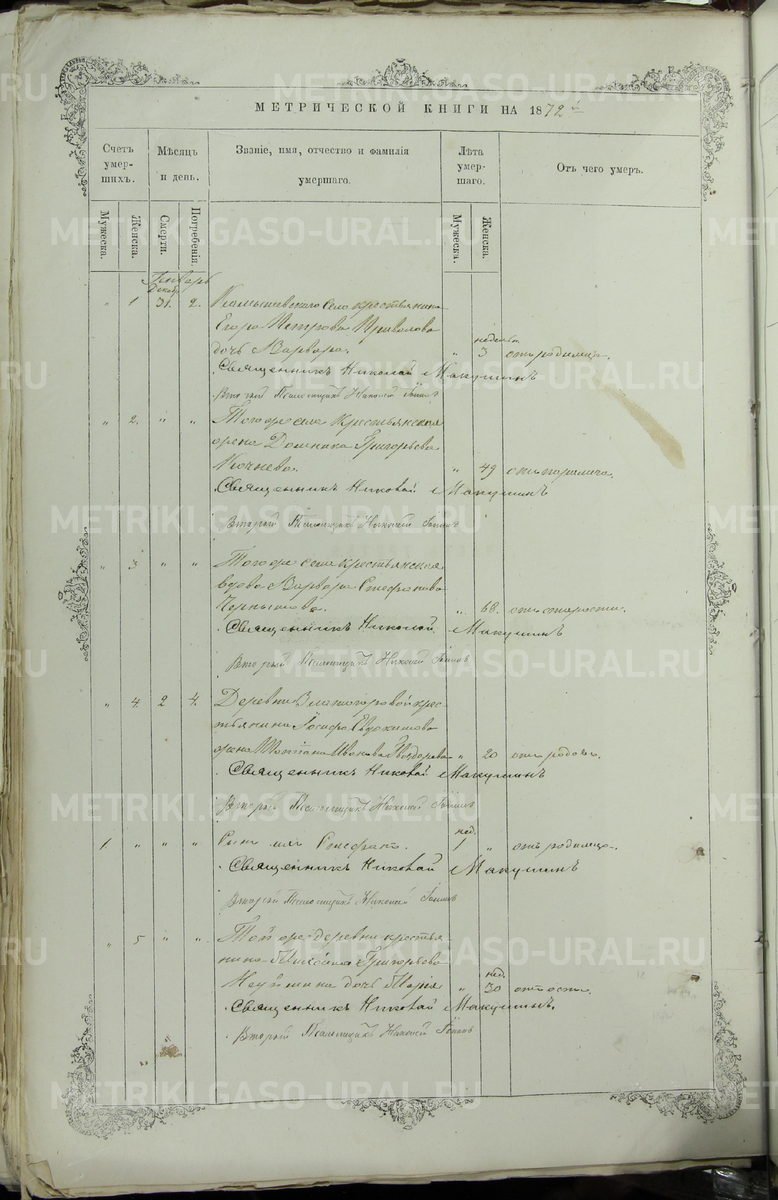 МЕТРИЧЕСКОЙ КНИГИ НА 1872 г.
Счетъ умер-шихъ.
Мѣсяцъ и день.
Званіе, имя, отчество и фамилія умершаго.
Лѣта умер-шаго.
Отъ чего умеръ.
Мужеска.
Женска.
Смерти.
Погребенія.
Мужеска
Женска.
Январь
Декаб.
" 1 31. 2. Камышевскаго села крестьянина
Егора Петрова
дочь Варвара. " недель. 3 отъ родимца.
Священникъ Николай Макушинъ
Второй Псаломщикъ Николай
" 2. " " Тогоже села Крестьянская
жена Домника Григорьева
" 49 отъ паралича.
Священникъ Николай Макушинъ
Второй Псаломщикъ Николай
" 3 " " Тогоже села крестьянская
вдова Варвара Стефанова
Чернышева. " 68. отъ старости.
Священникъ Николай Макушинъ
Второй Псаломщикъ Николай
" 4. 2 4. Деревни Златогоровой крес-
тьянина Іосифа Евдокимова
жена Татіана Иванова " 20 отъ родовъ.
Священникъ Николай Макушинъ
Второй Псаломщикъ Николай
1. " " " Сынъ ихъ Стефанъ. нед. 1 " отъ родимца.
Священникъ Николай Макушинъ
Второй Псаломщикъ Николай
" 5 " " Той же деревни крестья-
нина Григорьева
дочь Марія " нед. 30 отъ оспы.
Священникъ Николай Макушинъ.
Второй Псаломщикъ Николай
METRIKI.GASO-URAL.RU